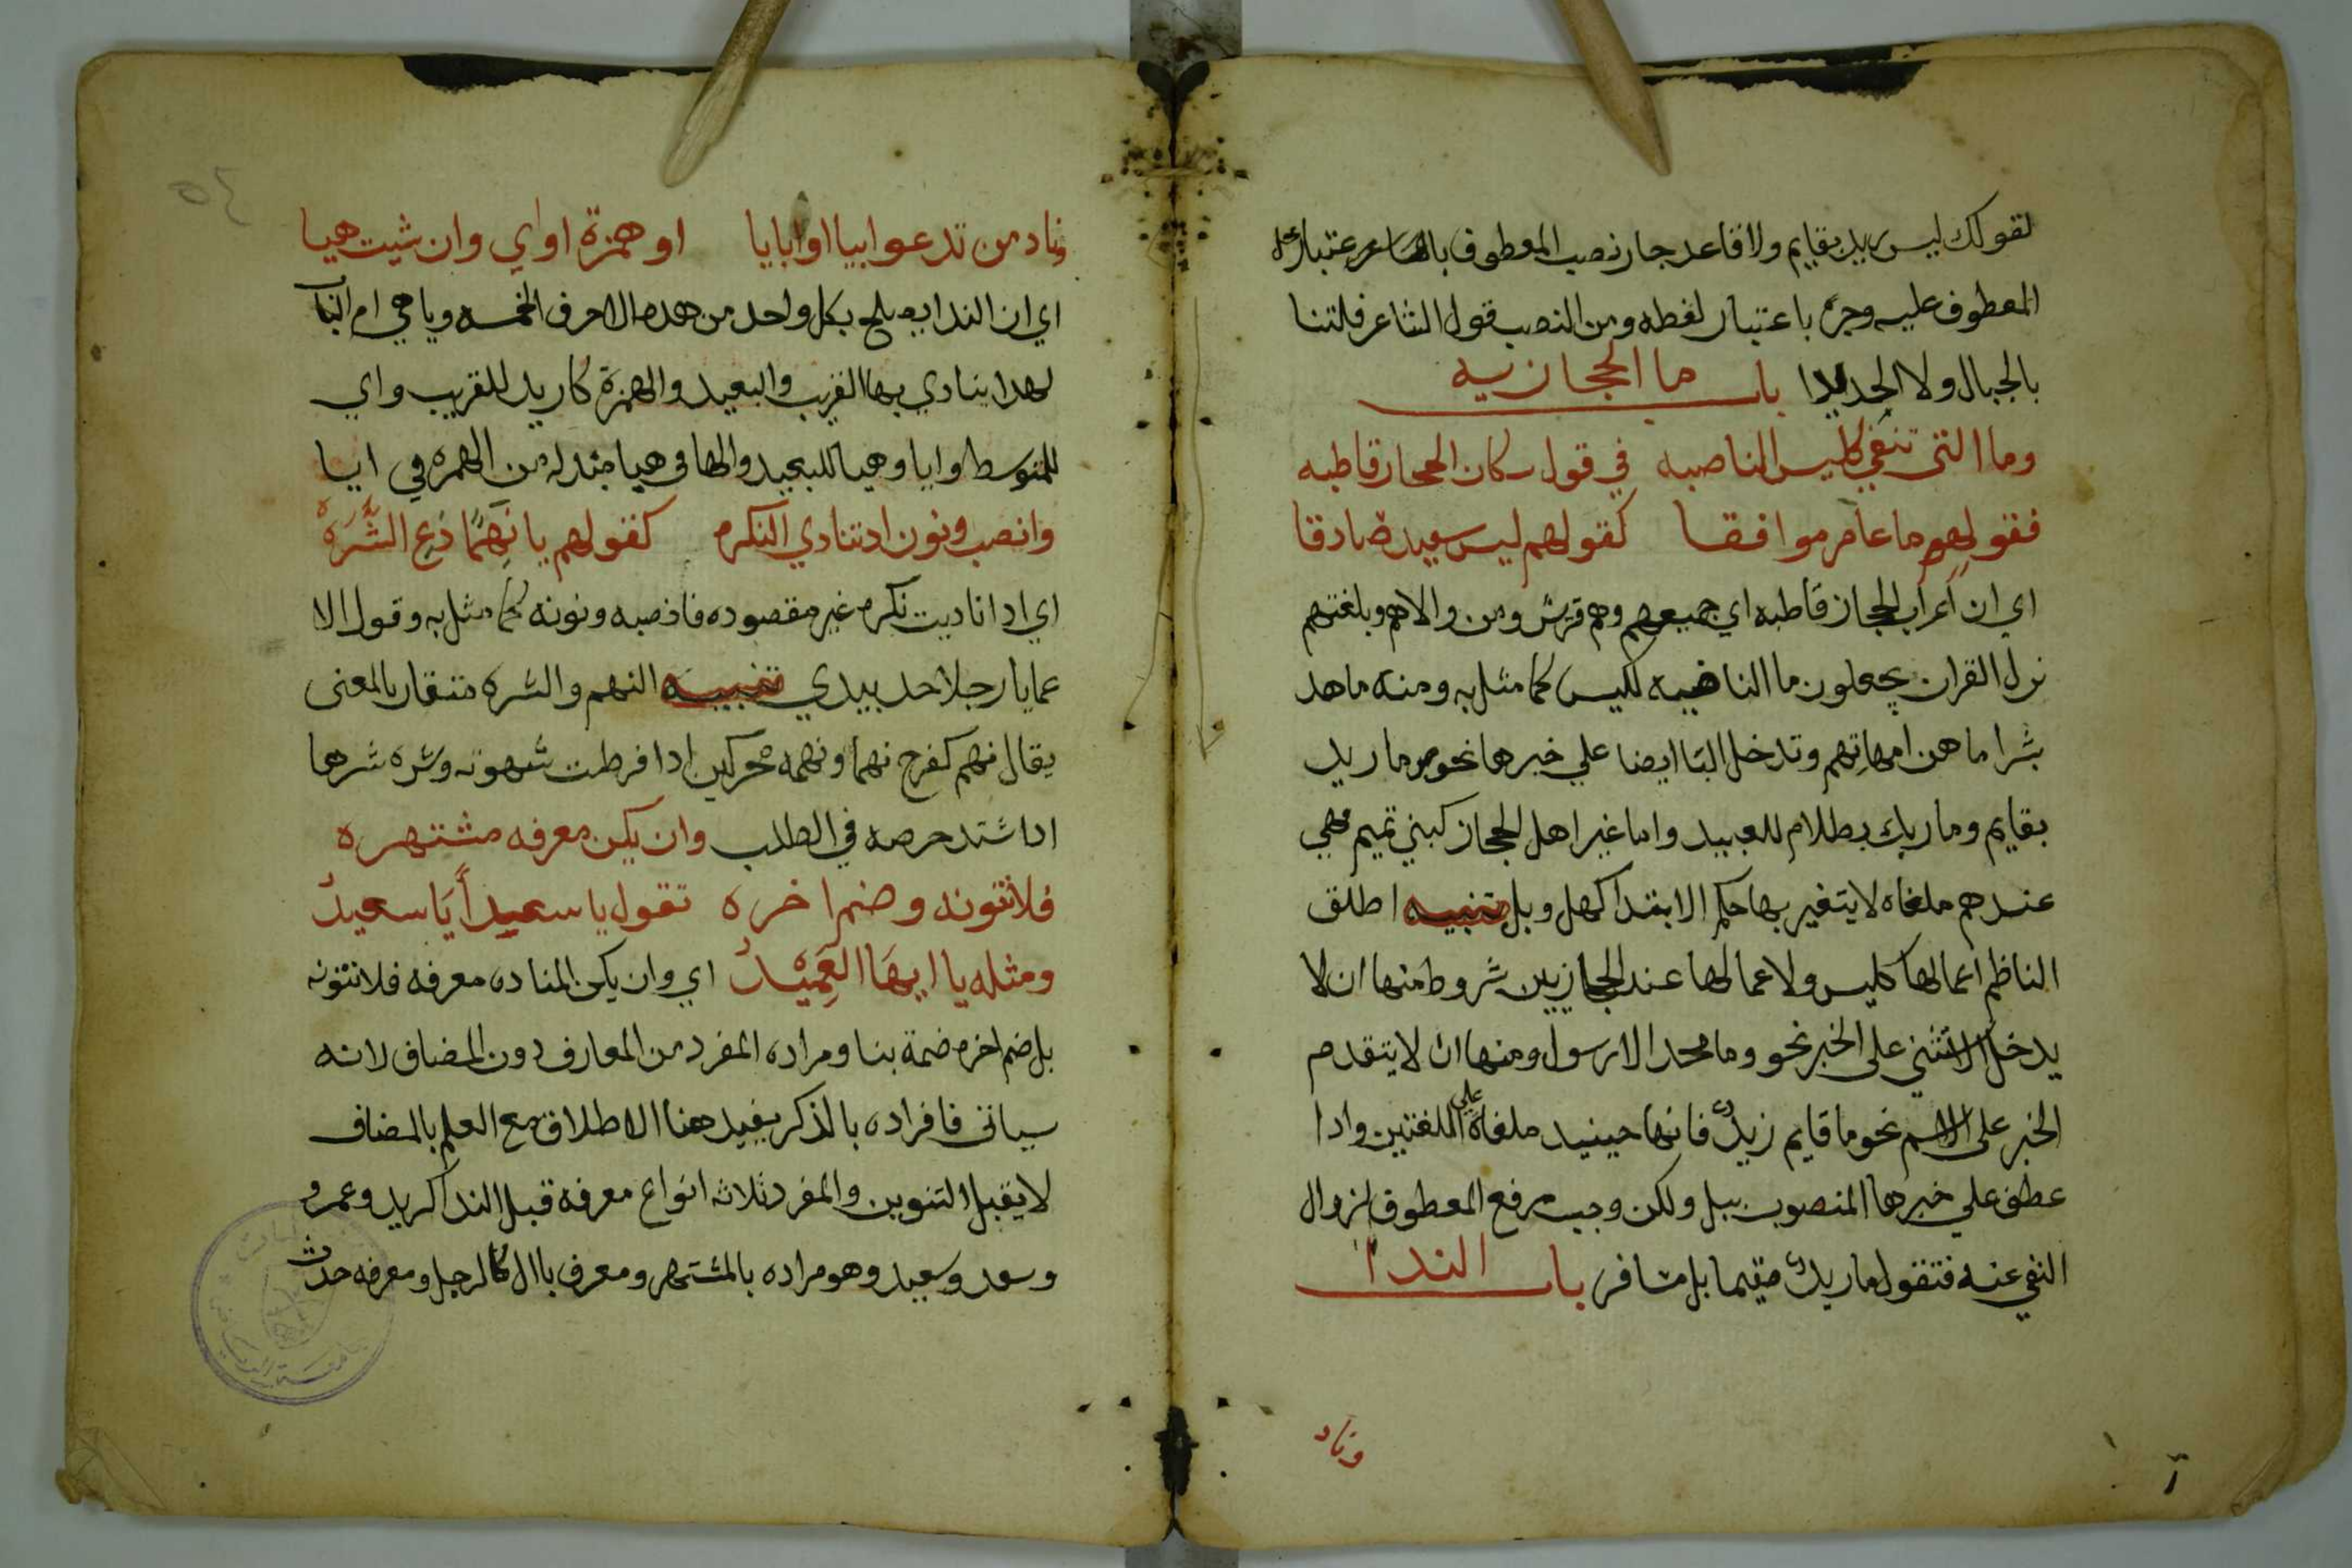 كقولك ليس زيد بقايم ولا قاعد جاز نصب المعطوف باعتبار محله
المعطوف عليه وجره باعتبار لفظه ومن النصب قول الشاعر فلسنا
بالجبال ولا الحديدا باب ما الحجازيه
وما التي تنفي كليس الناصبه في قول سكان الحجاز قاطبه
فقولهم ما عامر موافقا كقولهم ليس سعيد صادقا
اي ان اعراب الحجاز قاطبه اي جميعهم وهم قريش ومن والاهم وبلغتهم
نزل القران يجعلون ما النافيه كليس كما مثل به ومنه ما هدا
بشرا ما هن امهاتهم وتدخل البا ايضا علي خبرها نحو وما زيد
بقايم وما ربك بطلام للعبيد واما غير اهل الحجاز كبني تميم فهي
عندهم ملغاه لا يتغير بها حكم الابتدا كهل وبل تنبيه اطلق
الناظم اعمالها كليس ولاعمالها عند الحجازيين شروط منها ان لا
يدخل الاستثنى على الخبر نحو وما محمد الا رسول ومنها ان لا يتقدم
الخبر على الاسم نحو ما قايم زيد فانها حينيد ملغاة على اللغتين وادا
عطف علي خبرها المنصوب ببل ولكن وجب رفع المعطوف لزوال
النفي عنه فتقول ما زيد مقيما بل مسافر باب الندا
وناد
وناد من تدعوا بيا او بايا او همزة او اي وان شيت هيا
اي ان الندا يصلح بكل واحد من هده الاحرف الخمسه ويا هي ام الباب
لهدا ينادي بها القريب والبعيد والهمزة كازيد للقريب واي
للمتوسط وايا وهيا للبعيد والها في هيا مبدله من الهمزه في ايا
وانصب ونون ادتنادي النكره كقولهم يا نهما دع الشره
اي ادا ناديت نكره غير مقصوده فانصبه ونونه كما مثل به وقول الا
عمايا رجلا خد بيدي تنبيه النهم والشره متقاربا المعنى
يقال نهم كفرح نهما ونهمه محركين ادا فرطت شهوته وشره شرها
ادا شتد حرصه في الطلب وان يكن معرفه مشتهره
فلا تنونه وضم اخره تقول يا سعيدا يا سعيد
ومثله يا ايها العميد اي وان يكن المناده معرفه فلا تنونه
بل ضم اخره ضمة بنا ومراده المفرد من المعارف دون المضاف لانه
سياتى فافراده بالذكر يفيد هنا الاطلاق مع العلم بالمضاف
لا يقبل التنوين والمفرد ثلاثه انواع معرفه قبل الندا كزيد وعمرو
وسعد وسعيد وهو مراده بالمشتهر ومعرف باال كالرجل ومعرفه حدث